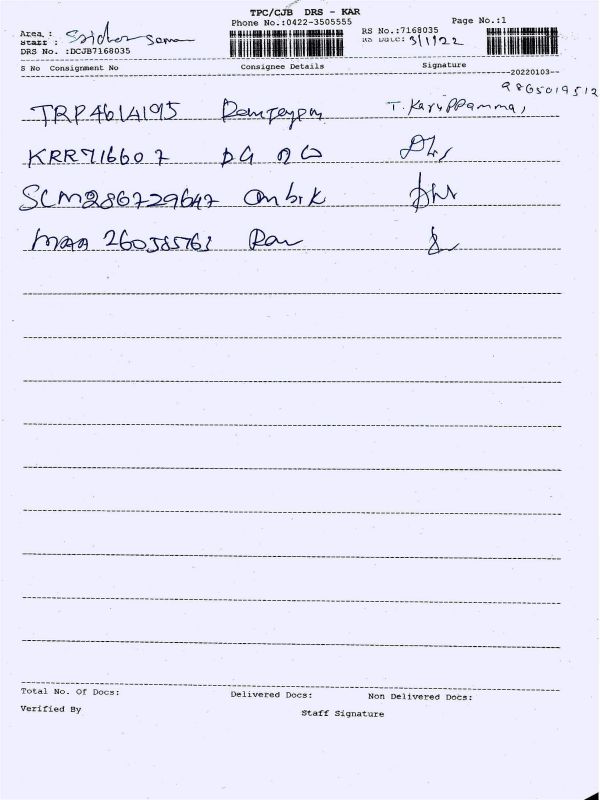 TPC/CJB DRS - KAR
Phone No.:0422-3505555 Page No.:1
Area :
Staff :
RS No.:7168035
RS Date: 3/1/22
DRS No. :DCJB7168035
S No Consignment No Consignee Details Signature
--20220103--
9865019512
TRP46141915 T. Karuppammal
KRR716607
SCM286729647
MAA 260585763
Total No. Of Docs: Delivered Docs: Non Delivered Docs:
Verified By Staff Signature